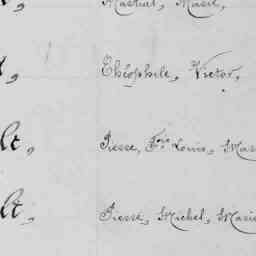 Martial, Marie,
Théophile, Victor,
lt, Pierre, Frs Louis, Mar
lt, Pierre, Michel, Marie